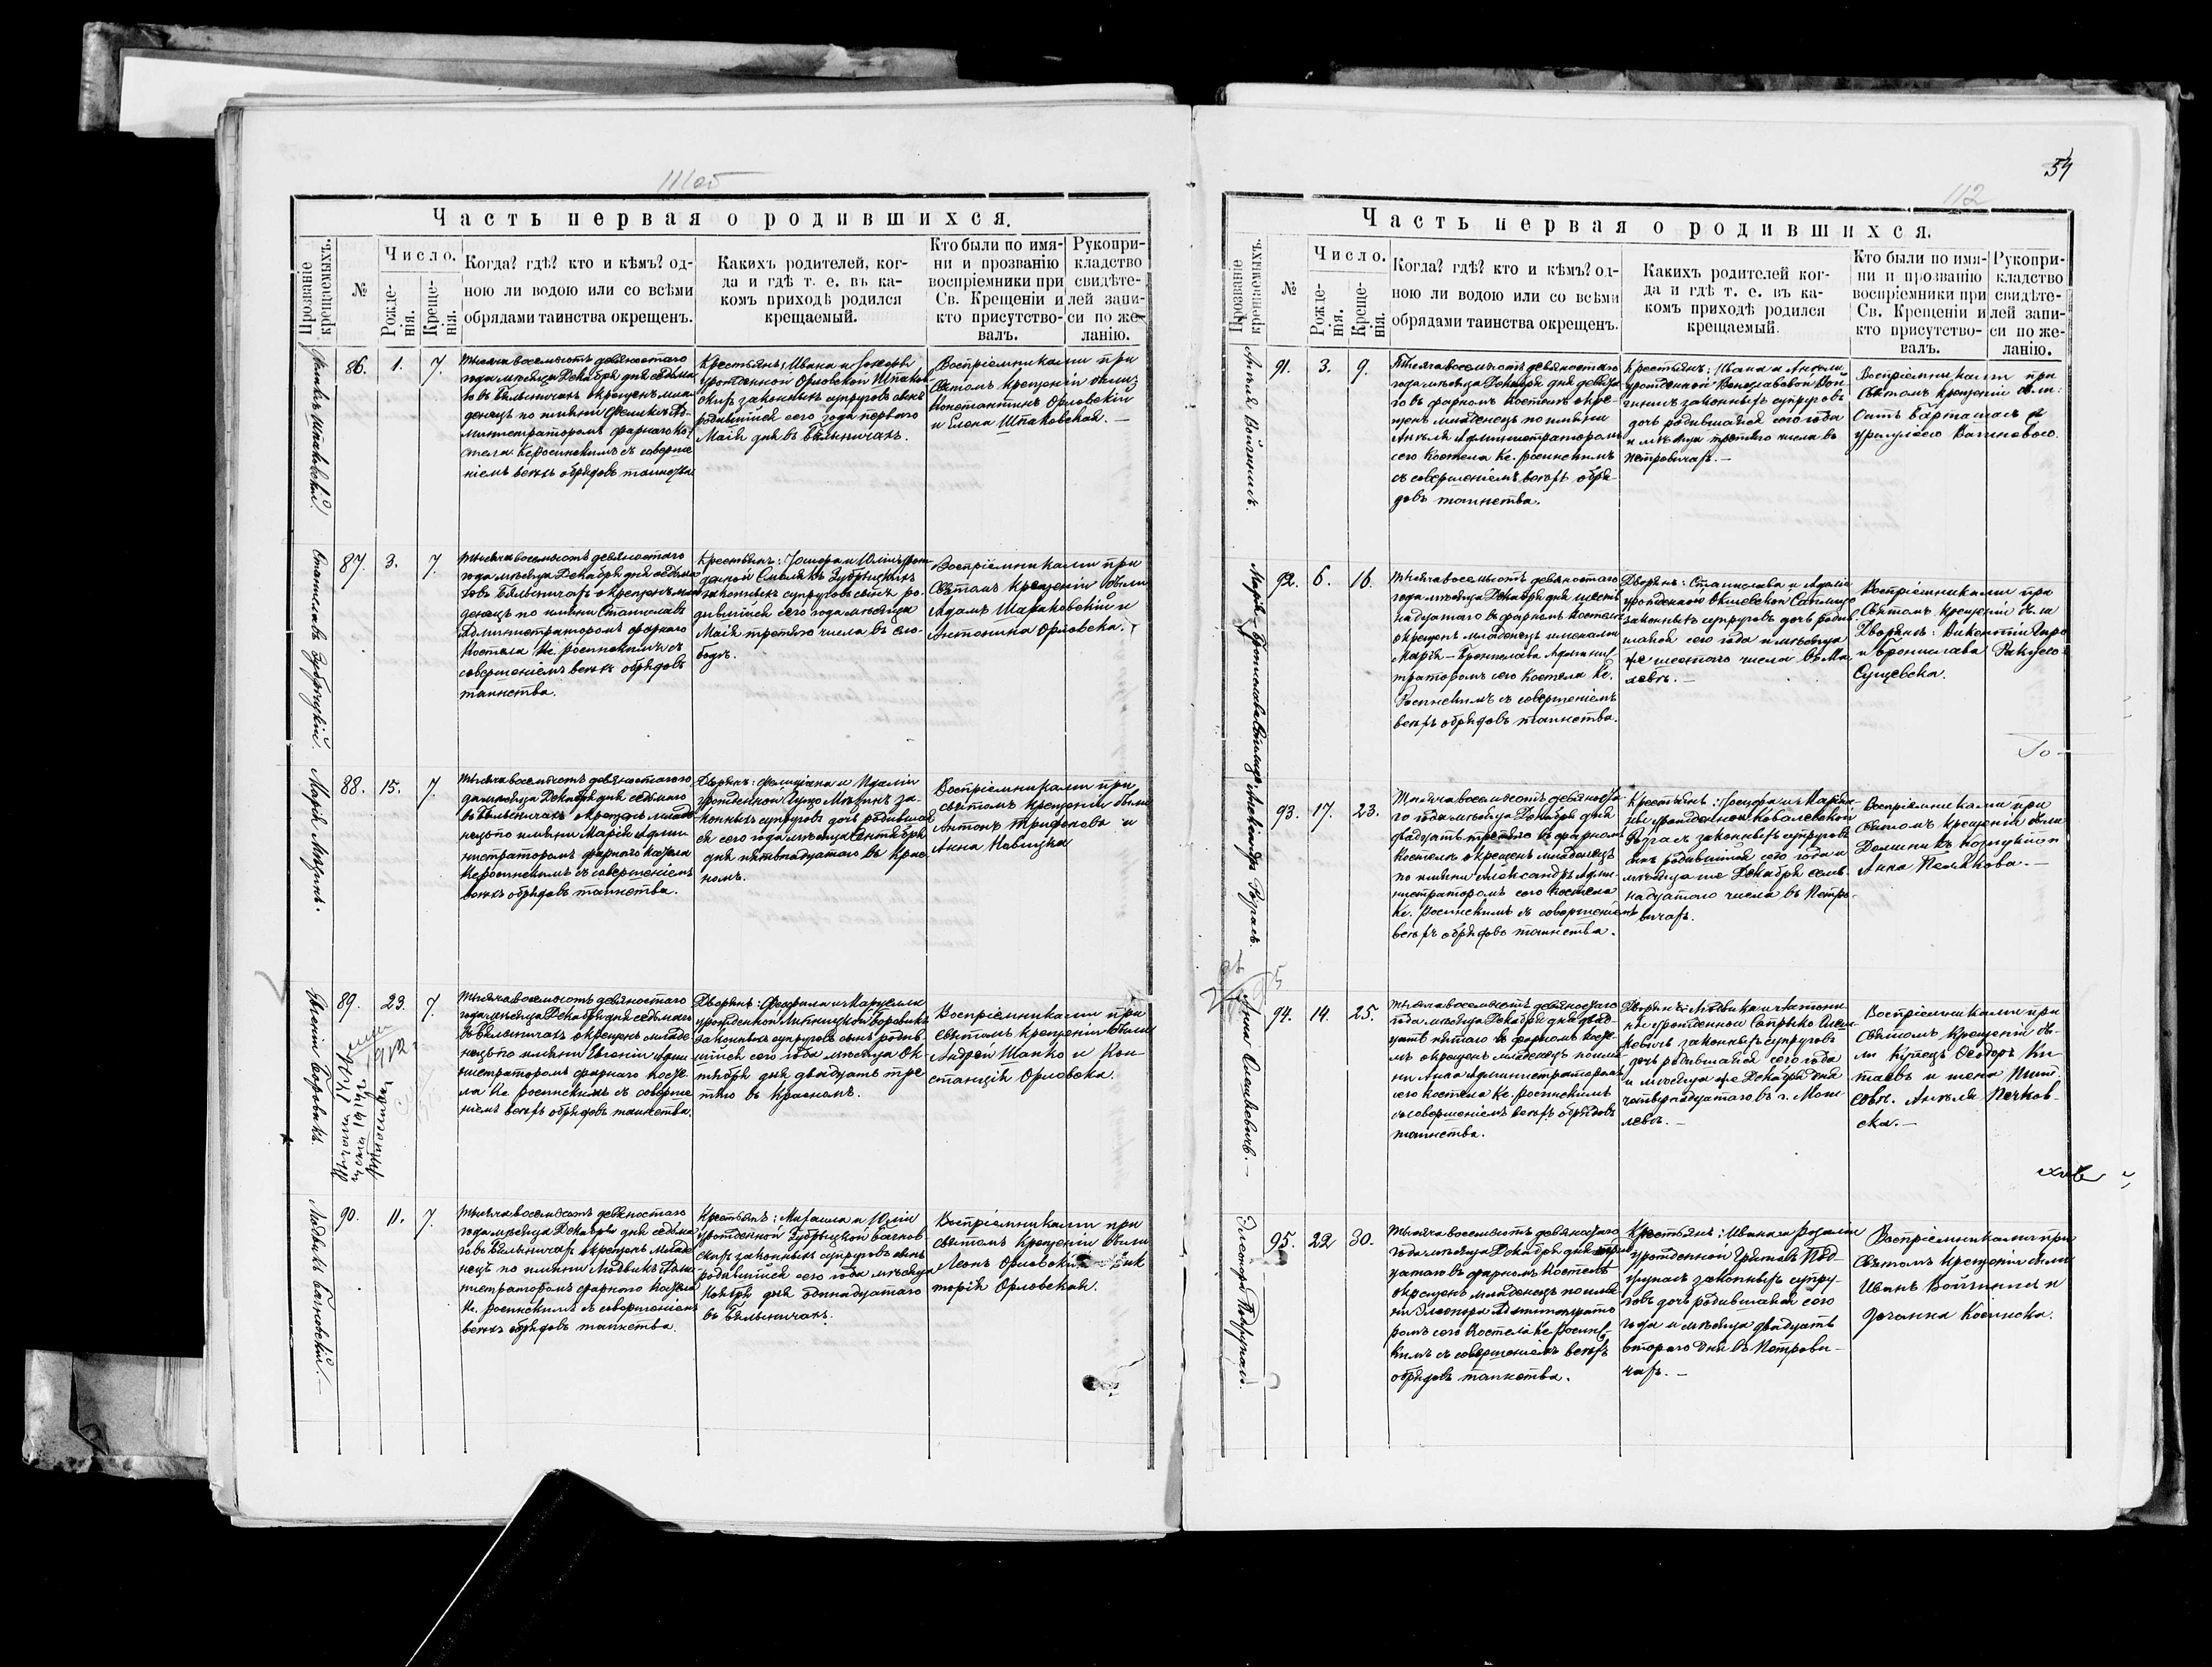 111об
Часть первая о родившихся.
Прозваніе крещаемыхъ.
№
Число.
Рожде-
нія.
Креще-
нія.
Когда? гдѣ? кто и кѣмъ? од-
ною ли водою или со всѣми
обрядами таинства окрещенъ.
Какихъ родителей, ког-
да и гдѣ т. е. въ ка-
комъ приходѣ родился
крещаемый.
Кто были по имя-
ни и прозванію
воспріемники при
Св. Крещеніи и
кто присутство-
валъ.
Рукопри-
кладство
свидѣте-
лей запи-
си по же-
ланію.
Феликсъ Шпаковскій.
86. 1. 7.
Тысяча восемьсотъ девяностаго
года мѣсяца Декабря дня седьма
го въ Бялыничахъ окрещенъ мла
денецъ по имяни Феликсъ Ад-
министраторомъ фарнаго Ко
стела Кс. Росинскимъ съ соверше
ніемъ всѣхъ обрядовъ таинства
Крестьянъ: Ивана и
урожденной Орловской Шпаков
скихъ законныхъ супруговъ сынъ
родившійся сего года перваго
Маія дня въ Бялыничахъ.
Воспріемниками при
Святомъ Крещеніи были
Константинъ Орловскій
и Елена Шпаковская. —
Станиславъ Зубрицкій.
87. 3. 7.
Тысяча восемьсотъ девяностаго
года мѣсяца Декабря дня седьма
го въ Бялыничахъ окрещенъ мла
денецъ по имяни Станиславъ
Администраторомъ фарнаго
Костела Кс. Росинскимъ съ
совершеніемъ всѣхъ обрядовъ
таинства.
Крестьянъ: Іосифа и Юліи урож-
денной Смолякъ Зубрицкихъ
законныхъ супруговъ сынъ ро-
дившійся сего года мѣсяца
Маія третяго числа въ Сло-
бодѣ.
Воспріемниками при
Святомъ Крещеніи были
Адамъ Шараковскій и
Антонина Орловска.
Марія Мазинъ.
88. 15. 7.
Тысяча восемьсотъ девяностаго го
да мѣсяца Декабря дня седьмаго
въ Бялыничахъ окрещенъ младе
нецъ по имяни Марія Адми
нистраторомъ фарнаго Костела
Кс. Росинскимъ съ совершеніемъ
всѣхъ обрядовъ таинства.
Дворянъ: Фелиціана и Идаліи
урожденной Мазинъ за-
конныхъ супруговъ дочь родившая
ся сего года мѣсяца Сентября
дня пятнадцатаго въ Крас-
номъ.
Воспріемниками при
святомъ Крещеніи были
Антонъ Трифоновъ и
Анна Новицка
Евгеній Боровикъ.
89. 23. 7.
Тысяча восемьсотъ девяностаго
года мѣсяца Декабря дня седьмаго
въ Бялыничахъ окрещенъ младе
нецъ по имяни Евгеній Адми
нистраторомъ фарнаго Косте
ла Кс. Росинскимъ съ соверше
ніемъ всѣхъ обрядовъ таинства.
Дворянъ: Феофила и Марцеллы
урожденной Липницкой Боровикъ
законныхъ супруговъ сынъ родив
шійся сего года мѣсяца Ок
тября дня двадцать тре
тяго въ Красномъ.
Воспріемниками при
святомъ Крещеніи были
Андрей Шапко и Кон-
станція Орловска.
Людвикъ Бачковскій. —
90. 11. 7.
Тысяча восемьсотъ девяностаго
года мѣсяца Декабря дня седьма
го въ Бялыничахъ окрещенъ младе
нецъ по имяни Людвикъ Адми
нистраторомъ фарнаго Костела
Кс. Росинскимъ съ совершеніемъ
всѣхъ обрядовъ таинства.
Крестьянъ: Михаила и Юліи
урожденной Зубрицкой Бачков-
скихъ законныхъ супруговъ сынъ
родившійся сего года мѣсяца
Ноября дня одинадцатаго
въ Бялыничахъ.
Воспріемниками при
святомъ Крещеніи были
Леонъ Орловскій
торія Орловская.
54
112
Часть первая о родившихся.
Прозваніе крещаемыхъ
№
Число.
Рожде-
нія.
Креще-
нія.
Когда? гдѣ? кто и кѣмъ? од-
ною ли водою или со всѣми
обрядами таинства окрещенъ.
Какихъ родителей ког-
да и гдѣ т. е. въ ка-
комъ приходѣ родился
крещаемый.
Кто были по имя-
ни и прозванію
воспріемники при
Св. Крещеніи и
кто присутство-
валъ.
Рукопри-
кладство
свидѣте-
лей запи-
си по же-
ланію.
Анѣля Войтишь.
91. 3. 9.
Тысяча восемьсотъ девяностаго
года мѣсяца Декабря дня девята
го въ фарномъ Костелѣ окре-
щенъ младенецъ по имяни
Анѣля Администраторомъ
сего Костела Кс. Росинскимъ
съ совершеніемъ всѣхъ обря-
довъ таинства.
Крестьянъ: Ивана и Анѣли
урожденной Вой
законныхъ супруговъ
дочь родившаяся сего года
и мѣсяца третяго числа въ
Петровичахъ. —
Воспріемниками при
Святомъ Крещеніи были:
92. 6. 16.
Тысяча восемьсотъ девяностаго
года мѣсяца Декабря дня шест
надцатаго въ фарномъ Костелѣ
окрещенъ младенецъ именами
Марія-Бронислава Админис
траторомъ сего Костела Кс.
Росинскимъ съ совершеніемъ
всѣхъ обрядовъ таинства.
Дворянъ: Станислава и
урожденной
законныхъ супруговъ дочь родив
шаяся сего года и мѣсяца
же шестого числа въ Мо
левѣ. —
Воспріемниками при
Святомъ Крещеніи были
Дворяне: Викентій
и Бронислава
Сущевска.
Александръ
93. 17. 23.
Тысяча восемьсотъ девяноста
го года мѣсяца Декабря дня
двадцать третяго въ фарномъ
Костелѣ окрещенъ младенецъ
по имяни Александръ Адми-
нистраторомъ сего Костела
Кс. Росинскимъ съ совершеніемъ
всѣхъ обрядовъ таинства.
Крестьянъ: Іосифа и Маріан-
ны урожденной Ковалевской
законныхъ супруговъ
сынъ родившійся сего года и
мѣсяца же Декабря семь
надцатаго числа въ Петро-
вичахъ.
Воспріемниками при
Святомъ Крещеніи были
Доминикъ и
Анна Полякова. —
Анна
94. 14. 25.
Тысяча восемьсотъ девяностаго
года мѣсяца Декабря дня двад-
цать пятаго въ фарномъ Косте-
лѣ окрещенъ младенецъ по имя-
ни Анна Администраторомъ
сего Костела Кс. Росинскимъ
съ совершеніемъ всѣхъ обрядовъ
таинства.
Дворянъ: Людвика и Антони-
ны урожденной
законныхъ супруговъ
дочь родившаяся сего года
и мѣсяца же Декабря дня
четырнадцатаго въ г. Моги-
левѣ. —
Воспріемниками при
Святомъ Крещеніи бы-
ли Купецъ Ѳеодоръ Ки-
таевъ и жена Тит.
Совѣт. Анѣля Печков-
ска. —
Элеонора
95. 22 30.
Тысяча восемьсотъ девяностаго
года мѣсяца Декабря дня трид
цатаго въ фарномъ Костелѣ
окрещенъ младенецъ по имя-
ни Элеонора Администрато
ромъ сего Костела Кс. Росинс-
кимъ съ совершеніемъ всѣхъ
обрядовъ таинства.
Крестьянъ: Ивана и Розаліи
урожденной
законныхъ супру-
говъ дочь родившаяся сего
года и мѣсяца двадцать
второго дня въ Петрови-
чахъ. —
Воспріемниками при
Святомъ Крещеніи были
Иванъ Войтишь и
Косинска.